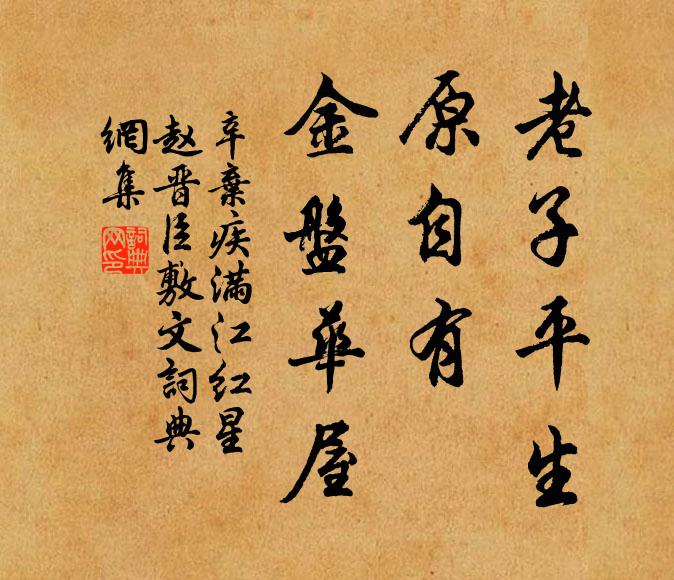 老子平生
原自有
金盤華屋
辛棄疾滿江红星
赵晋臣敷文詞典
網集
詞典網印